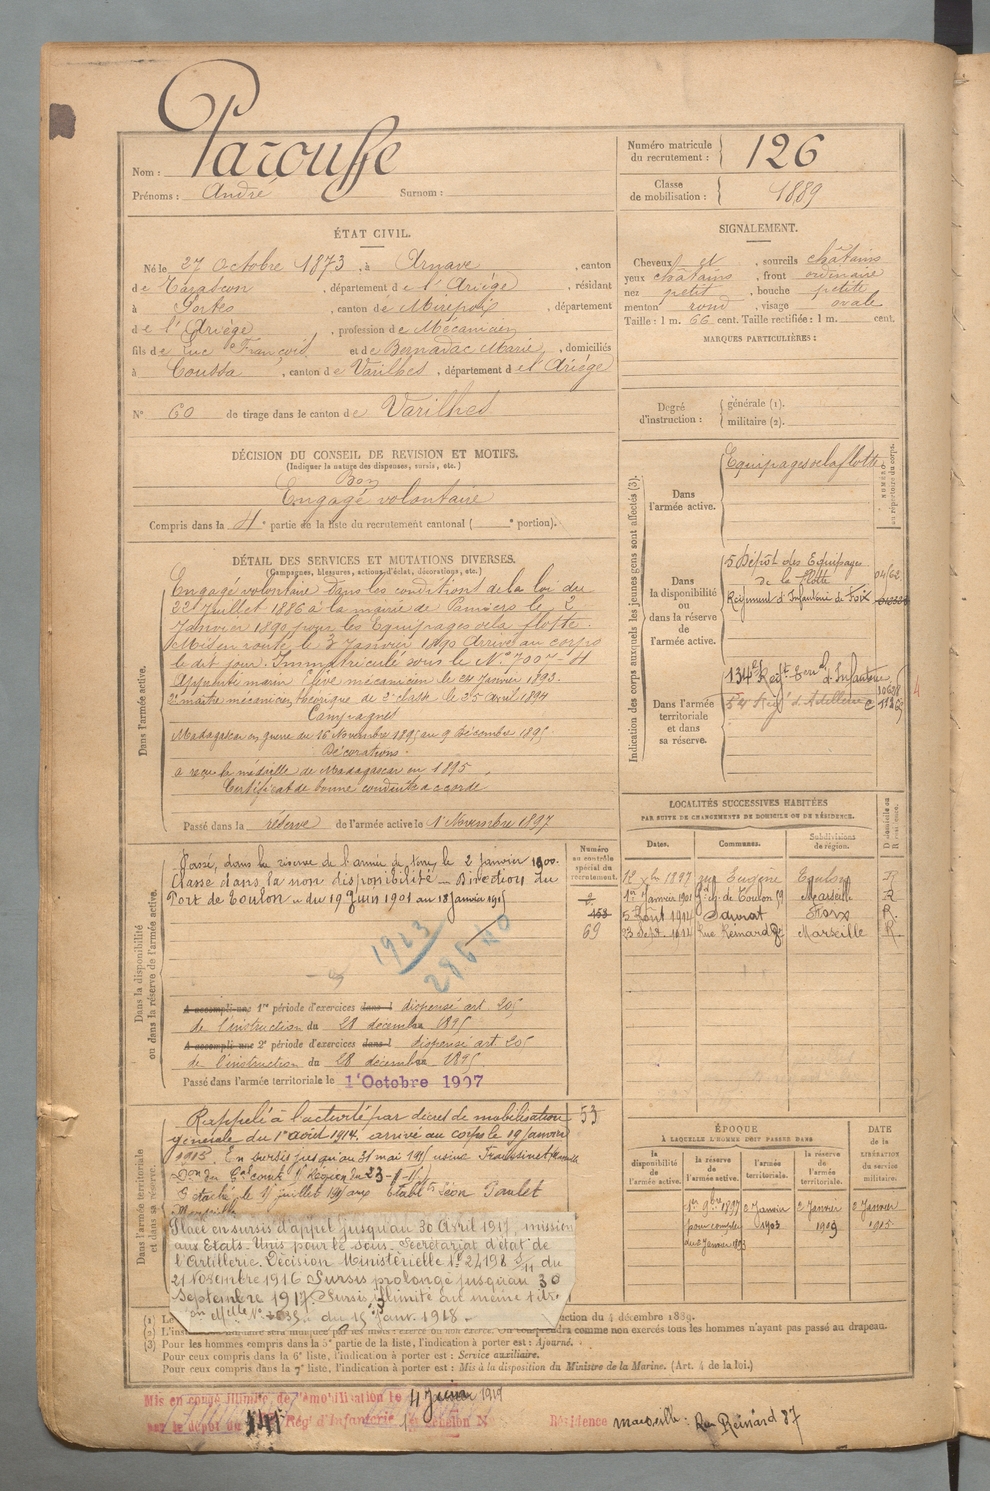 Nom : Parouffe
Prénoms : André Surnom :
Numéro matricule du recrutement : 126
Classe de mobilisation : 1889
ÉTAT CIVIL.
Né le 27 Octobre 1873, à Arnave, canton
de Tarascon, département de l'Ariège, résidant
à Portes, canton de Mirepoix, département
de l'Ariège, profession de Mécanicien
fils de Luc François et de Bernadac Marie, domiciliés
à Coussa, canton de Varilhes, département de l'Ariège
N° 60 de tirage dans le canton de Varilhes
SIGNALEMENT.
Cheveux et, sourcils châtains
yeux châtains, front ordinaire
nez petit, bouche petite
menton rond, visage ovale
Taille : 1 m. 66 cent. Taille rectifiée : 1 m. cent.
MARQUES PARTICULIÈRES :
Degré d'instruction : générale (1).
militaire (2).
DÉCISION DU CONSEIL DE REVISION ET MOTIFS.
(Indiquer la nature des dispenses, sursis, etc.)
Bon
Engagé volontaire
Compris dans la 4e partie de la liste du recrutement cantonal ( e portion).
DÉTAIL DES SERVICES ET MUTATIONS DIVERSES.
(Campagnes, blessures, actions d'éclat, décorations, etc.)
Dans l'armée active.
Engagé volontaire dans les conditions de la loi du
22 Juillet 1886 à la mairie de Pamiers le 2
Janvier 1890 pour les Equipages de la flotte.
Mis en route le 3 Janvier 1890 Arrivé au corps
le dit jour. Immatriculé sous le N° 7007-4
Apprenti marin Elève mécanicien le 24 Janvier 1893.
2e maître mécanicien théorique de 2e classe le 25 Avril 1894
Campagnes
Madagascar en guerre du 16 Novembre 1895 au 9 Décembre 1895
Décorations.
a reçu la médaille de Madagascar en 1895.
Certificat de bonne conduite accordé
Passé dans la réserve de l'armée active le 1er Novembre 1897
Indication des corps auxquels les jeunes gens sont affectés (3).
NUMÉRO au répertoire du corps.
Dans l'armée active.
Equipages de la flotte
Dans la disponibilité ou dans la réserve de l'armée active.
5 Dépôt des Equipages
de la flotte
Régiment d'Infanterie de Foix
04/62
Dans l'armée territoriale et dans sa réserve.
134e Regt Terral d'Infanterie
Dans la disponibilité ou dans la réserve de l'armée active.
Passé, dans la réserve de l'armée de mer, le 2 janvier 1900.
Classé dans la non disponibilité - Direction du
Port de Toulon - du 19 Juin 1901 au 18 Janvier 1915
Numéro au contrôle spécial du recrutement.
153
69
1923
A accompli une 1re période d'exercices dans l dispensé art. 205
de l'instruction du 28 décembre 1895
A accompli une 2e période d'exercices dans l dispensé art. 205
de l'instruction du 28 décembre 1895
Passé dans l'armée territoriale le 1er Octobre 1907
LOCALITÉS SUCCESSIVES HABITÉES
PAR SUITE DE CHANGEMENTS DE DOMICILE OU DE RÉSIDENCE.
Dates. Communes. Subdivisions de région. D domicile ou R résidence.
12 Xbre 1897 rue Eugène Toulon R
1er Janvier 1901 de Toulon 19 Marseille R
5 Août 1914 Saurat Foix R.
23 Sept. 1914 Rue Reinard 87 Marseille R.
Dans l'armée territoriale et dans sa réserve.
Rappelé à l'activité par décret de mobilisation
générale du 1er août 1914. arrivé au corps le 19 Janvier
1915. En sursis jusqu'au 31 mai 1915 usine Fraissinet, Marseille
Détaché le 1er juillet 1915 aux Établts Léon Paulet
Marseille
53
Placé en sursis d'appel jusqu'au 30 Avril 1917, mission
aux Etats-Unis pour le sous-Secrétariat d'état de
l'Artillerie. Décision Ministérielle N° 24198 du
21 Novembre 1916 Sursis prolongé jusqu'au 30
Septembre 1917. Sursis illimité au même titre
du 15 Janv. 1918.
ÉPOQUE
À LAQUELLE L'HOMME DOIT PASSER DANS
la disponibilité de l'armée active. la réserve de l'armée active. l'armée territoriale. la réserve de l'armée territoriale.
DATE de la LIBÉRATION du service militaire.
1er 9bre 1897
2 Janvier 1903
2 Janvier 1909
2 Janvier 1915
(1) Le
ction du 4 décembre 1889.
comme non exercés tous les hommes n'ayant pas passé au drapeau.
(3) Pour les hommes compris dans la 5e partie de la liste, l'indication à porter est : Ajourné.
Pour ceux compris dans la 6e liste, l'indication à porter est : Service auxiliaire.
Pour ceux compris dans la 7e liste, l'indication à porter est : Mis à la disposition du Ministre de la Marine. (Art. 4 de la loi.)
Mis en congé illimité de démobilisation le 4 Janvier 1919
sur le dépôt du 141 Rég d'Infanterie 1er échelon N°
Résidence Marseille : Rue Reinard 87